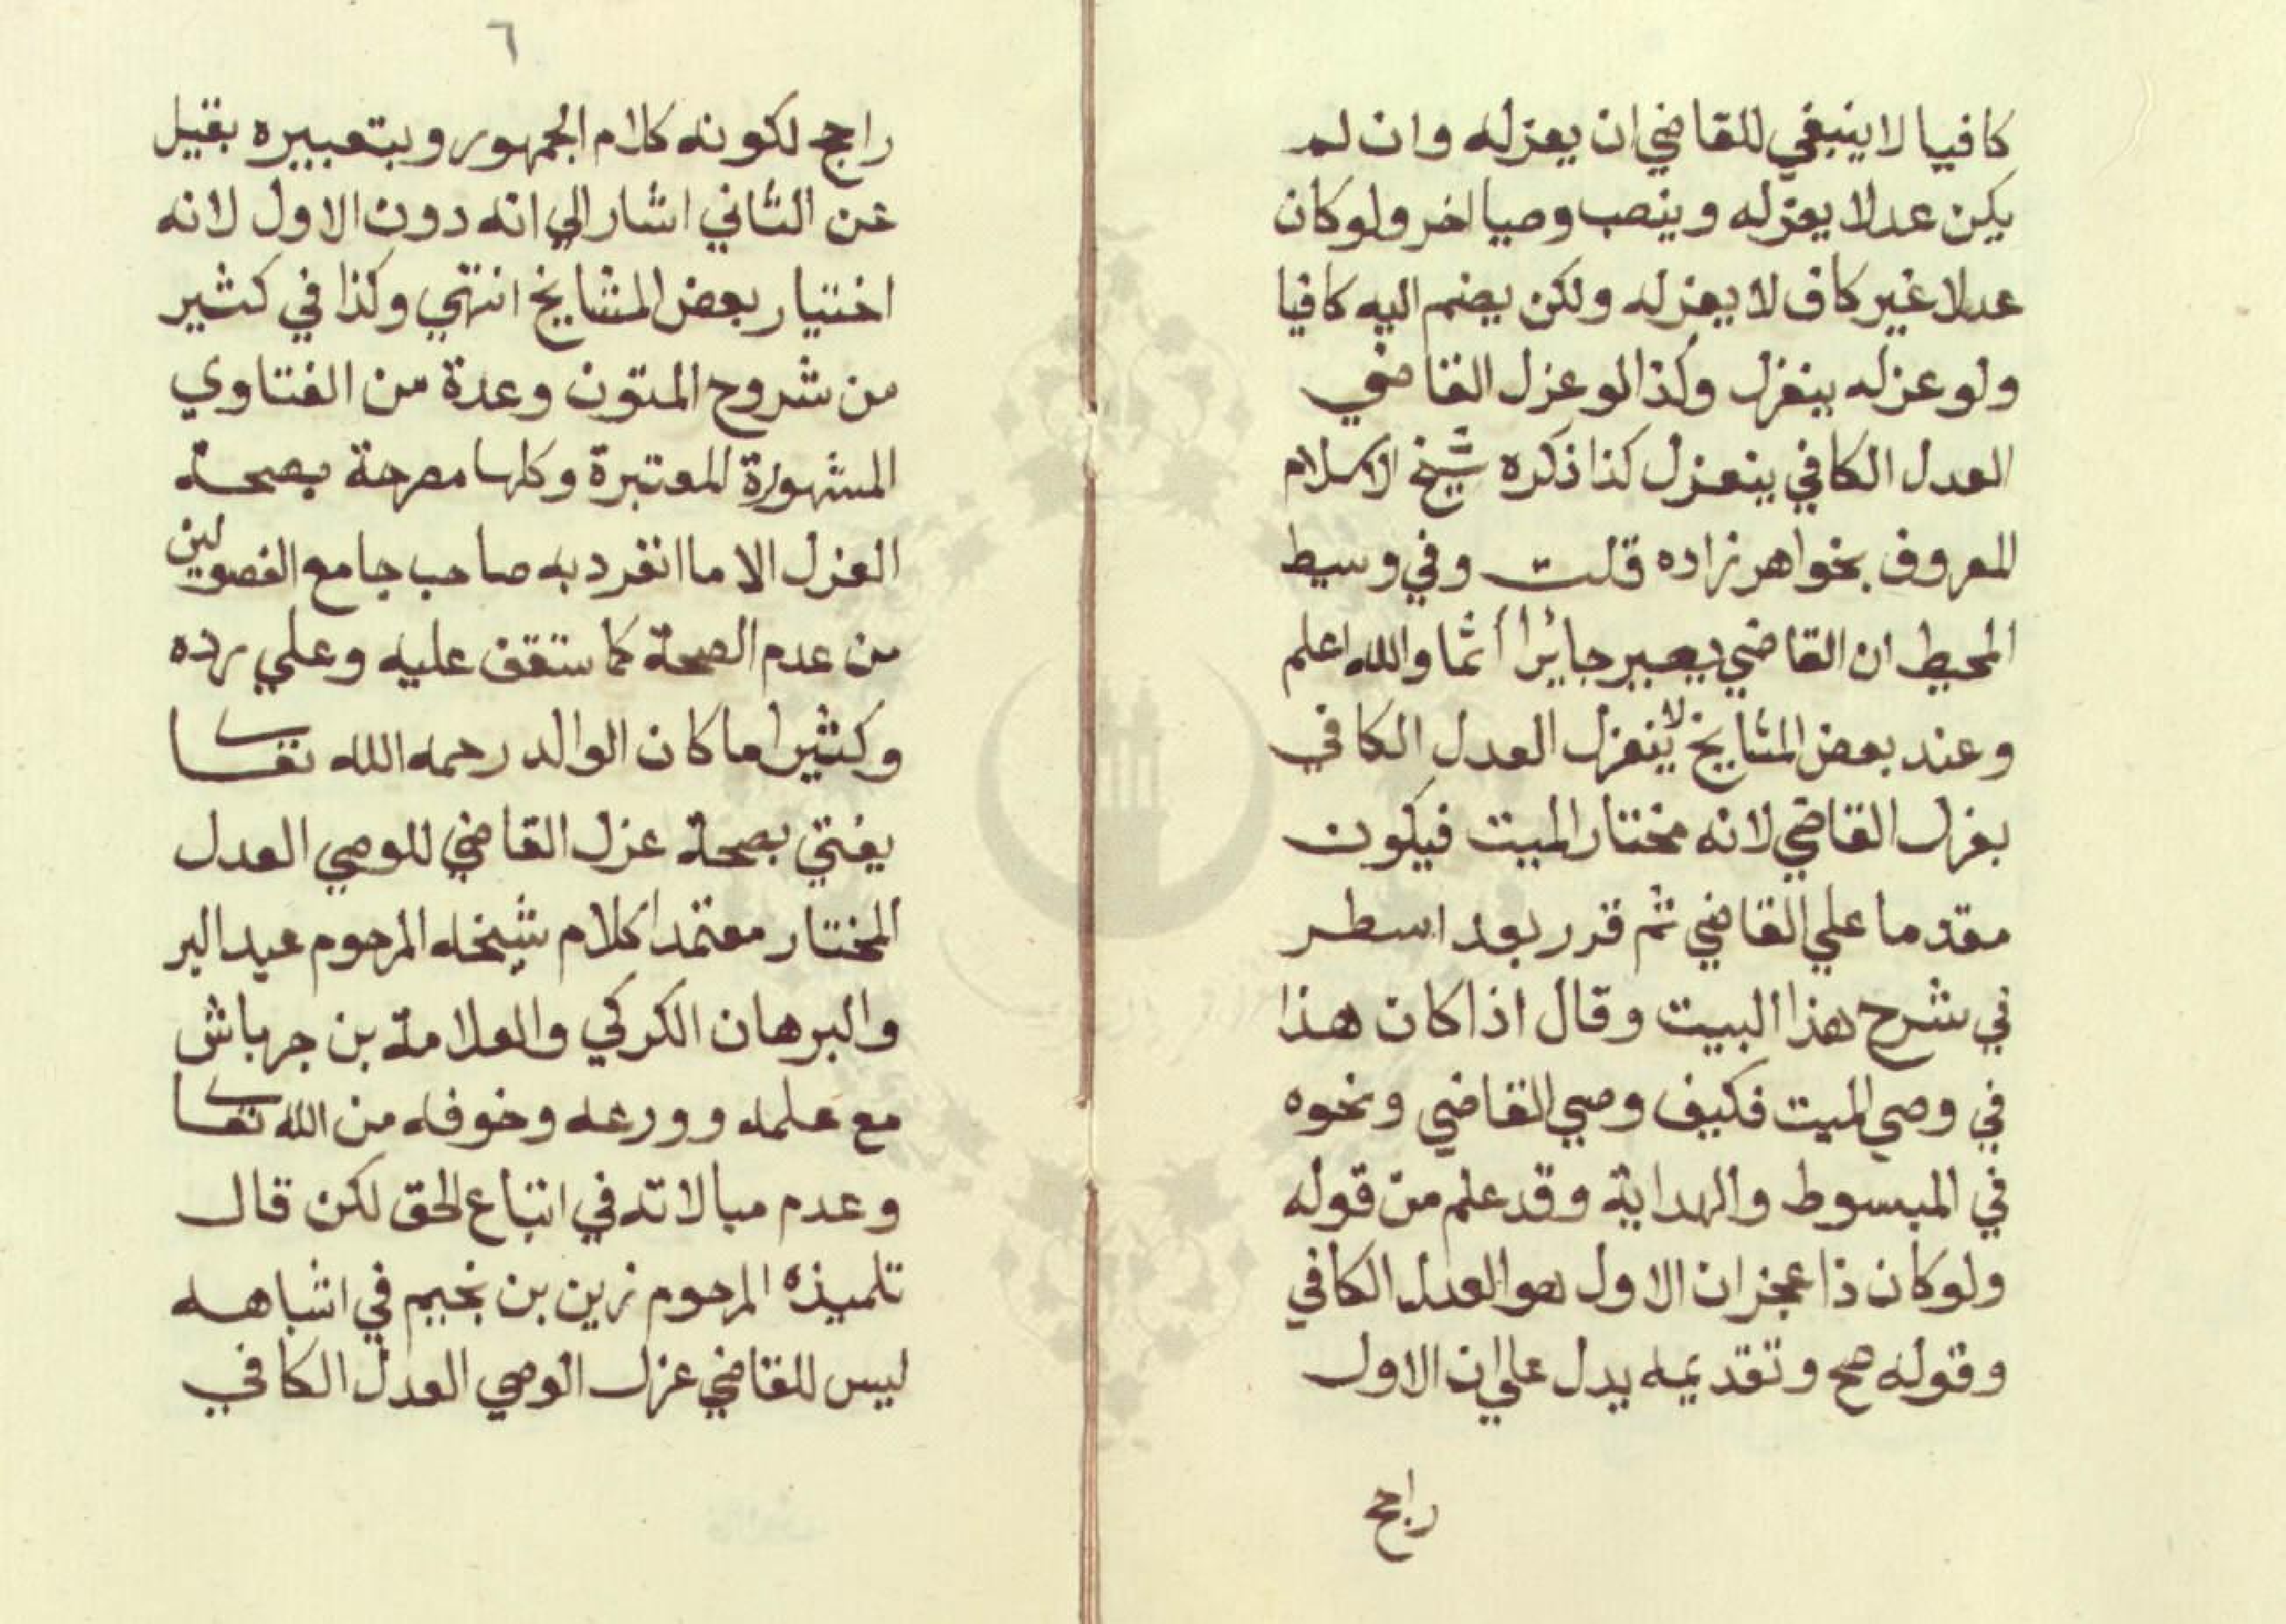 كافيا لا ينبغي للقاضي ان يعزله وان لم
يكن عدلا يعزله وينصب وصيا اخر ولو كان
عدلا غير كاف لا يعزله ولكن يضم اليه كافيا
ولو عزله ينعزل وكذا لو عزل القاضي
العدل الكافي ينعزل كذا ذكره شيخ الاسلام
المعروف بخواهر زاده قلت وفي وسيط
المحيط ان القاضي يصير جايرا أثما والله اعلم
وعند بعض المشايخ لا ينعزل العدل الكافي
بعزل القاضي لانه مختار الميت فيكون
مقدما علي القاضي ثم قرر بعد اسطر
في شرح هذا البيت وقال اذا كان هذا
في وصي الميت فكيف وصي القاضي ونحوه
في المبسوط والهداية وقد علم من قوله
ولو كان ذا عجز ان الاول هو العدل الكافي
وقوله صح وتقديمه يدل علي ان الاول
راجح
٦
راجح لكونه كلام الجمهور وبتعبيره بقيل
عن الثاني اشار الي انه دون الاول لانه
اختيار بعض المشايخ انتهي وكذا في كثير
من شروح المتون وعدة من الفتاوي
المشهورة المعتبرة وكلها مصرحة بصحة
العزل الا ما انفرد به صاحب جامع الفصولين
من عدم الصحة كما ستقف عليه وعلي رده
وكثيرا ما كان الوالد رحمه الله تعا
يفتي بصحة عزل القاضي للوصي العدل
المختار معتمدا كلام شيخه المرحوم عبد البر
والبرهان الكركي والعلامة بن جرباش
مع علمه وورعه وخوفه من الله تعا
وعدم مبالاته في اتباع الحق لكن قال
تلميذه المرحوم زين بن نجيم في اشباهه
ليس للقاضي عزل الوصي العدل الكافي